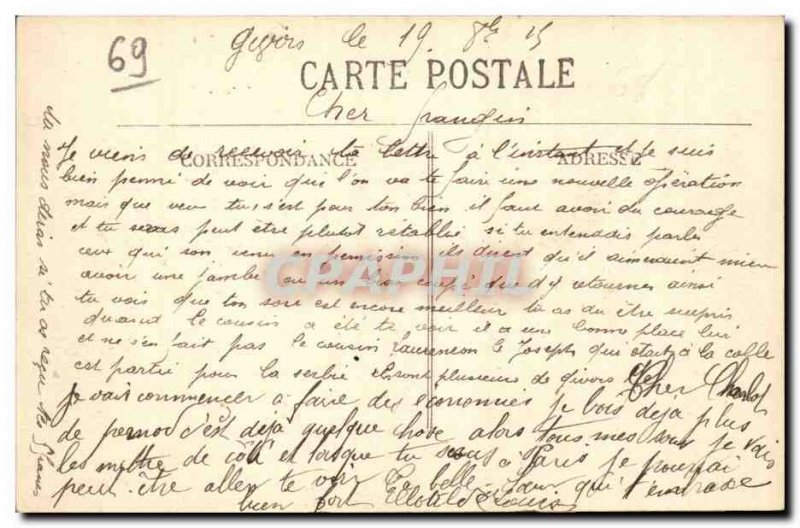 69
Givors le 19 8bre 15
CARTE POSTALE
Cher
CORRESPONDANCE
ADRESSE
Je viens de recevoir ta lettre à l'instant et je suis
bien penné de voir que l'on va te faire une nouvelle opération
mais que veux tu, s'est pour ton bien il faut avoir du courage
et tu seras peut être plutot rétablie si tu entendais parler
ceux qui son venu en permission ils disent qu'il aimeraient mieu
avoir une jambe ou un bras coupé que d'y retourner ainsi
tu vois que ton sort est encore meilleur tu as du être surpris
quand le cousin a été te voir il a une bonne place lui
et ne s'en fait pas le cousin le Joseph qui était à la colle
est partie pour la serbie ils sont plusieurs de givors
Cher Charlot
je vait commencer à faire des économies je bois déja plus
de pernod c'est déjà quelque chose alors tous mes sous je vais
les mettre de côté et lorsque tu seras à Paris je pourrai
peut être aller te voir Ta belle soeur qui t'embrasse
bien fort
tu nous diras si tu as reçu les
CPAPHIL